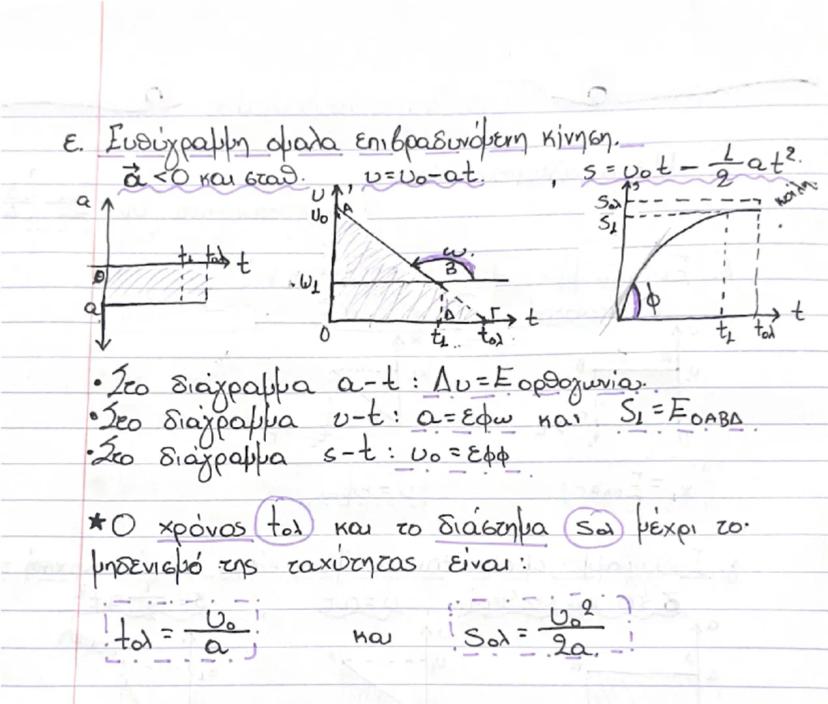 ε. Ευθύγραμμη ομαλα επιβραδυνόμενη κίνηση.
a⃗ <0 και σταθ. , υ=υ₀-at. , s=υ₀t - 1/2 at².
a
t₁ tολ t
0
a
υ
υ₀ A
ω
B
Δ Γ
0 t₁ tολ t
s
Sολ
S₁
κοίλη
φ
t₁ tολ t
• Στο διάγραμμα a-t : Δυ=Εορθογωνία.
• Στο διάγραμμα υ-t : a=εφω και S₁=ΕΟΑΒΔ
• Στο διάγραμμα s-t : υ₀=εφφ
★ Ο χρόνος tολ και το διάστημα Sολ μέχρι το
μηδενισμό της ταχύτητας είναι:
tολ = υ₀/a και Sολ = υ₀²/2a.